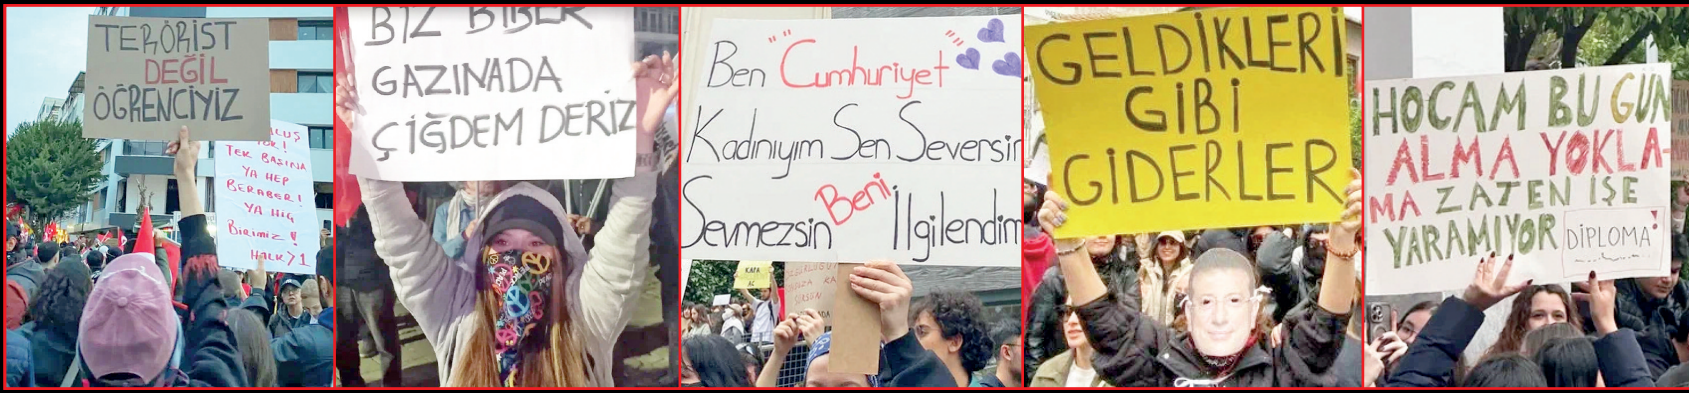 TERÖRİST
DEĞİL
ÖĞRENCİYİZ
TEK BAŞINA
YA HEP
BERABER!
YA HİÇ
Birimiz!
HALK>1
BİZ BİBER
GAZINADA
ÇİĞDEM DERİZ
Ben "Cumhuriyet"
Kadınıyım Sen Seversin
Sevmezsin Beni İlgilendirm
KAFA
GELDİKLERİ
GİBİ
GİDERLER
HOCAM BU GÜN
ALMA YOKLA-
MA ZATEN İŞE
YARAMIYOR DİPLOMA!